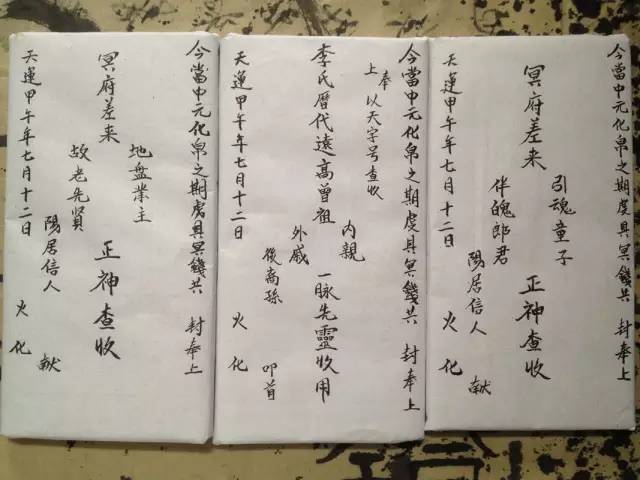 今當中元化帛之期虔具冥錢共 封奉上
引魂童子
冥府差来 正神查收
伴魄郎君
陽居信人 献
天運甲午年七月十二日 火化
今當中元化帛之期虔具冥錢共 封奉上
上奉 以天字号查收
内親
李氏曆代遠高曾祖 一脉先靈收用
外戚
後裔孫 叩首
天運甲午年七月十二日 火化
今當中元化帛之期虔具冥錢共 封奉上
地盤業主
冥府差来 正神查收
故老先賢
陽居信人 献
天運甲午年七月十二日 火化